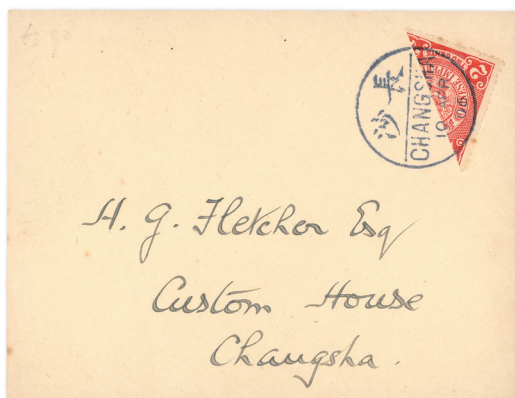 長沙
CHANGSHA
10 APR
2
H. G. Fletcher Esq
Custom House
Changsha.